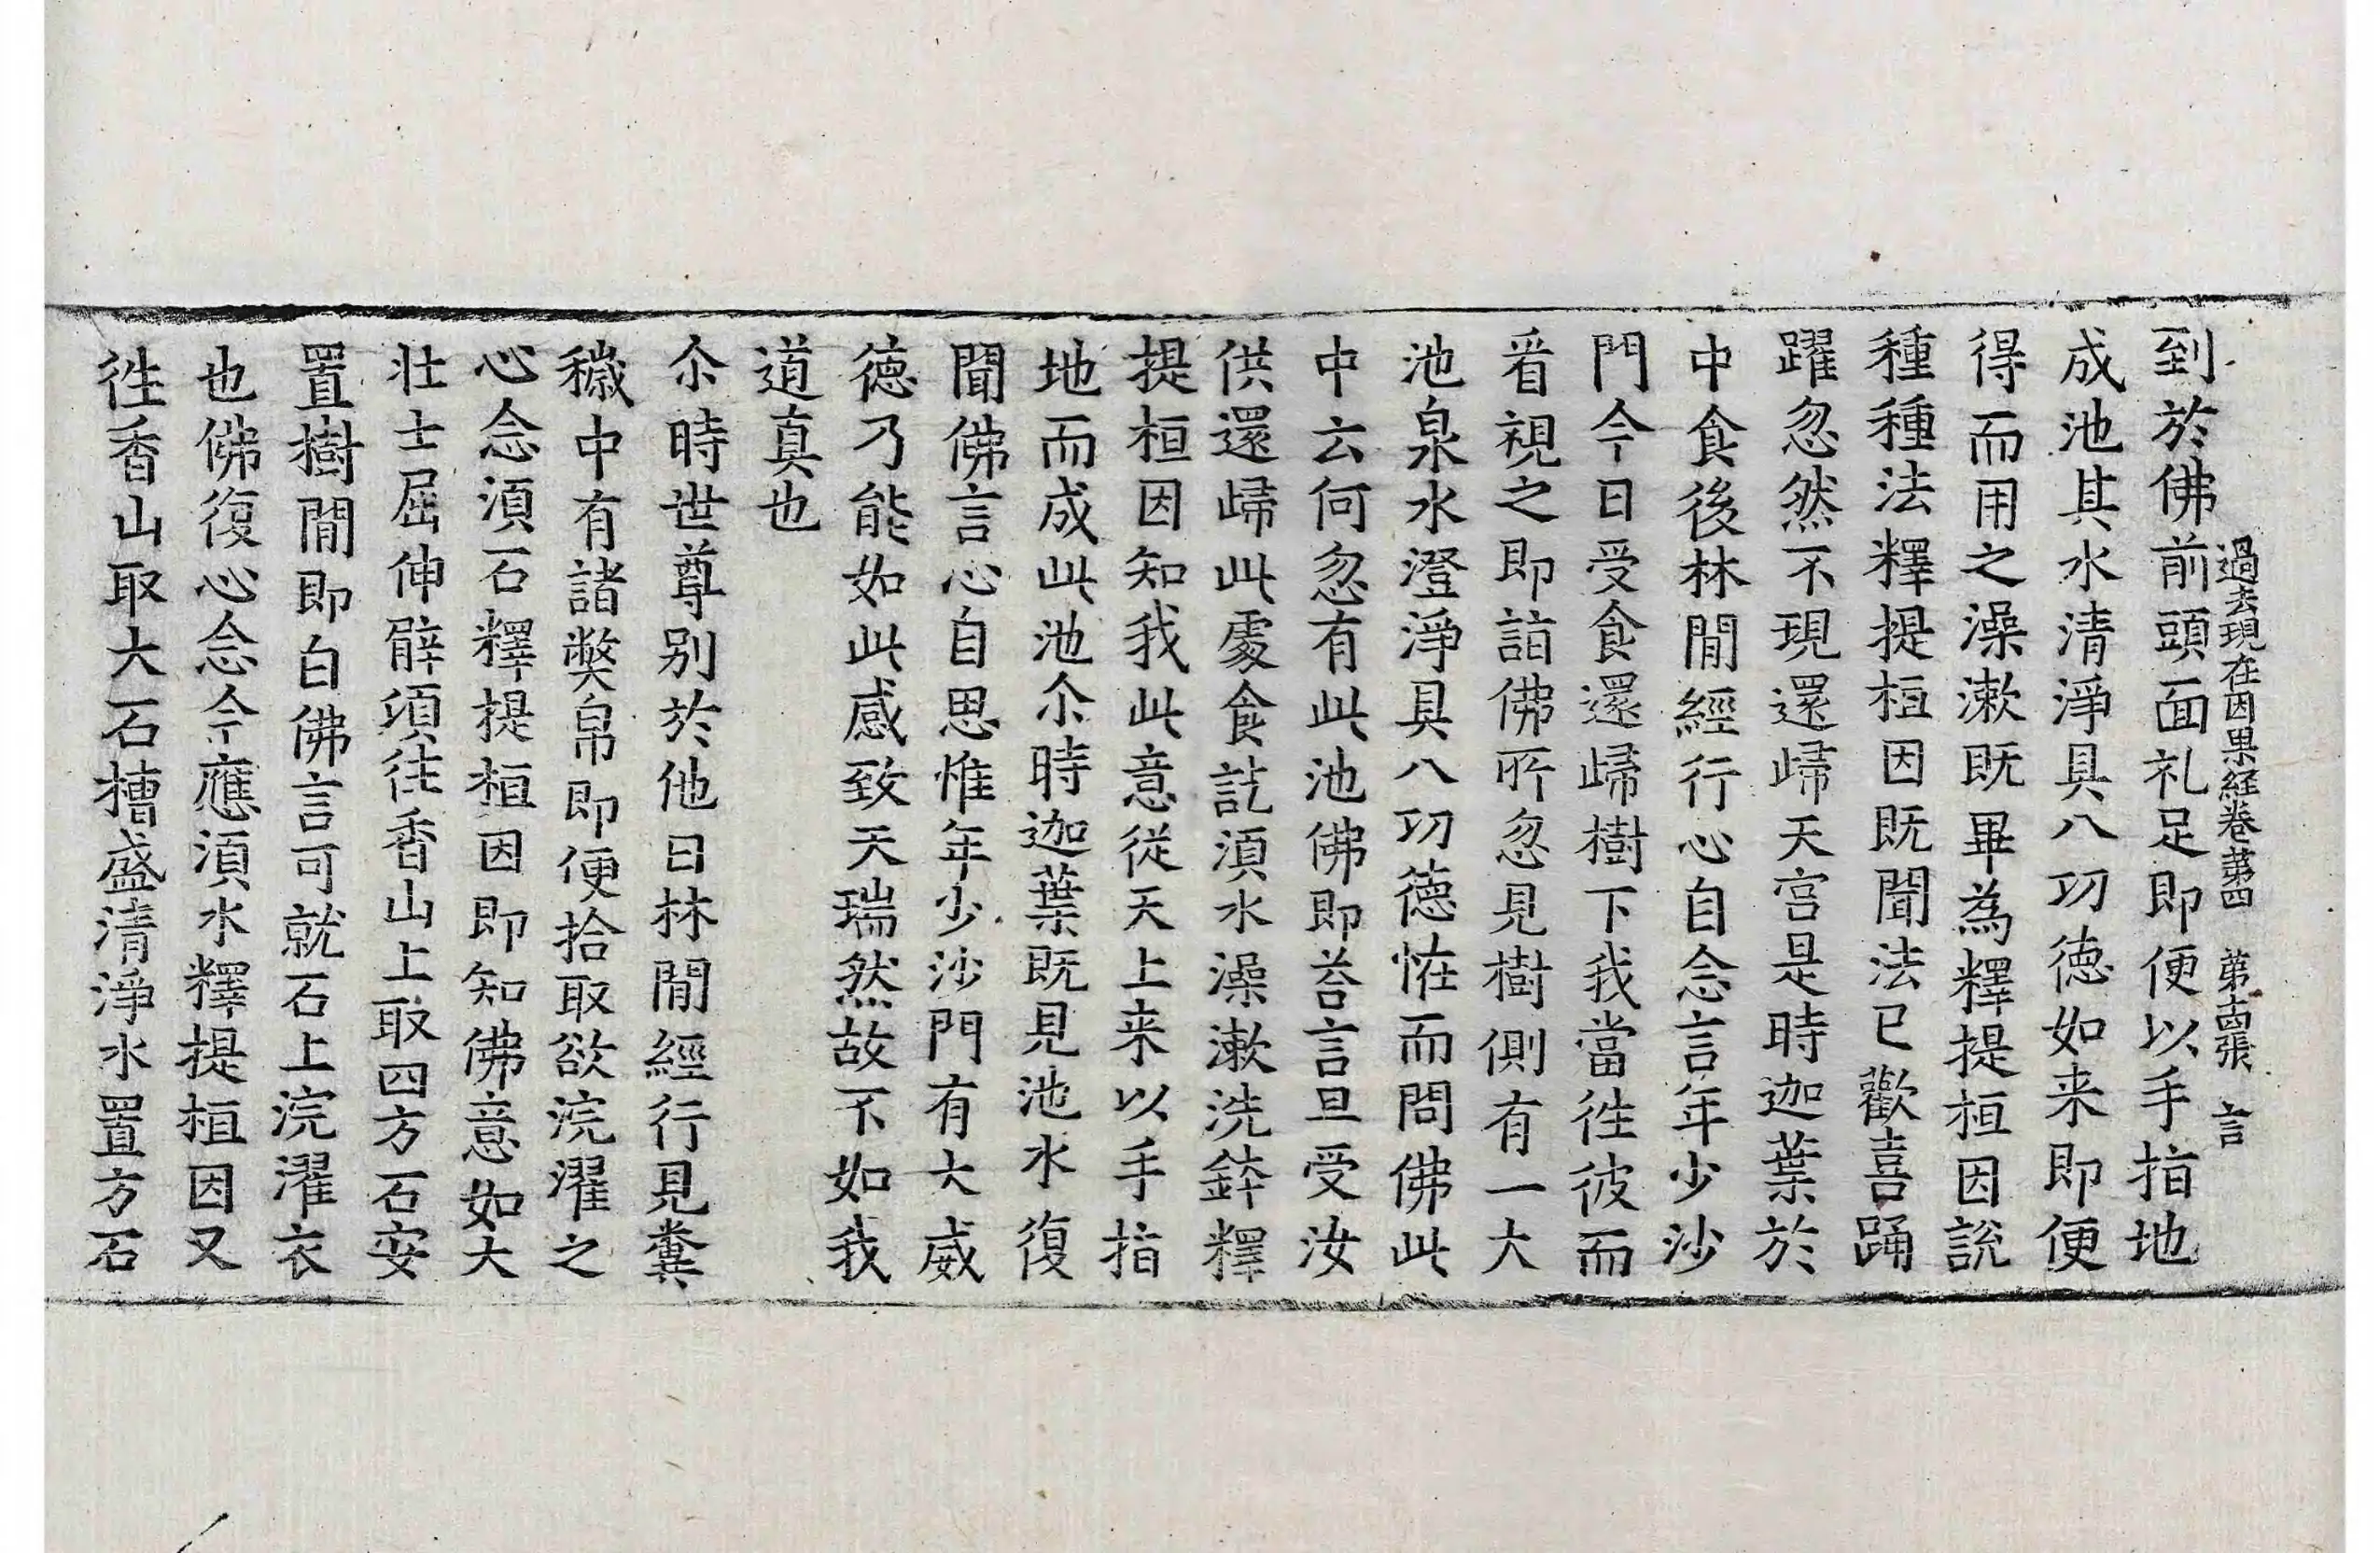 過去現在因果経卷苐四 苐十四張 言
到於佛前頭面礼足即便以手指地
成池其水清淨具八功德如来即便
得而用之澡漱既畢為釋提桓因說
種種法釋提桓因既聞法已歡喜踊
躍忽然不現還歸天宮是時迦葉於
中食後林閒經行心自念言年少沙
門今日受食還歸樹下我當徃彼而
看視之即詣佛所忽見樹側有一大
池泉水澄淨具八功德恠而問佛此
中云何忽有此池佛即荅言旦受汝
供還歸此處食訖湏水澡漱洗鉢釋
提桓因知我此意從天上来以手指
地而成此池尒時迦葉既見池水復
聞佛言心自思惟年少沙門有大威
德乃能如此感致天瑞然故不如我
道真也
尒時世尊別於他日林閒經行見糞
穢中有諸弊帛即便拾取欲浣濯之
心念湏石釋提桓因即知佛意如大
壯士屈伸臂頃徃香山上取四方石安
置樹閒即白佛言可就石上浣濯衣
也佛復心念今應湏水釋提桓因又
徃香山取大石槽盛清淨水置方石